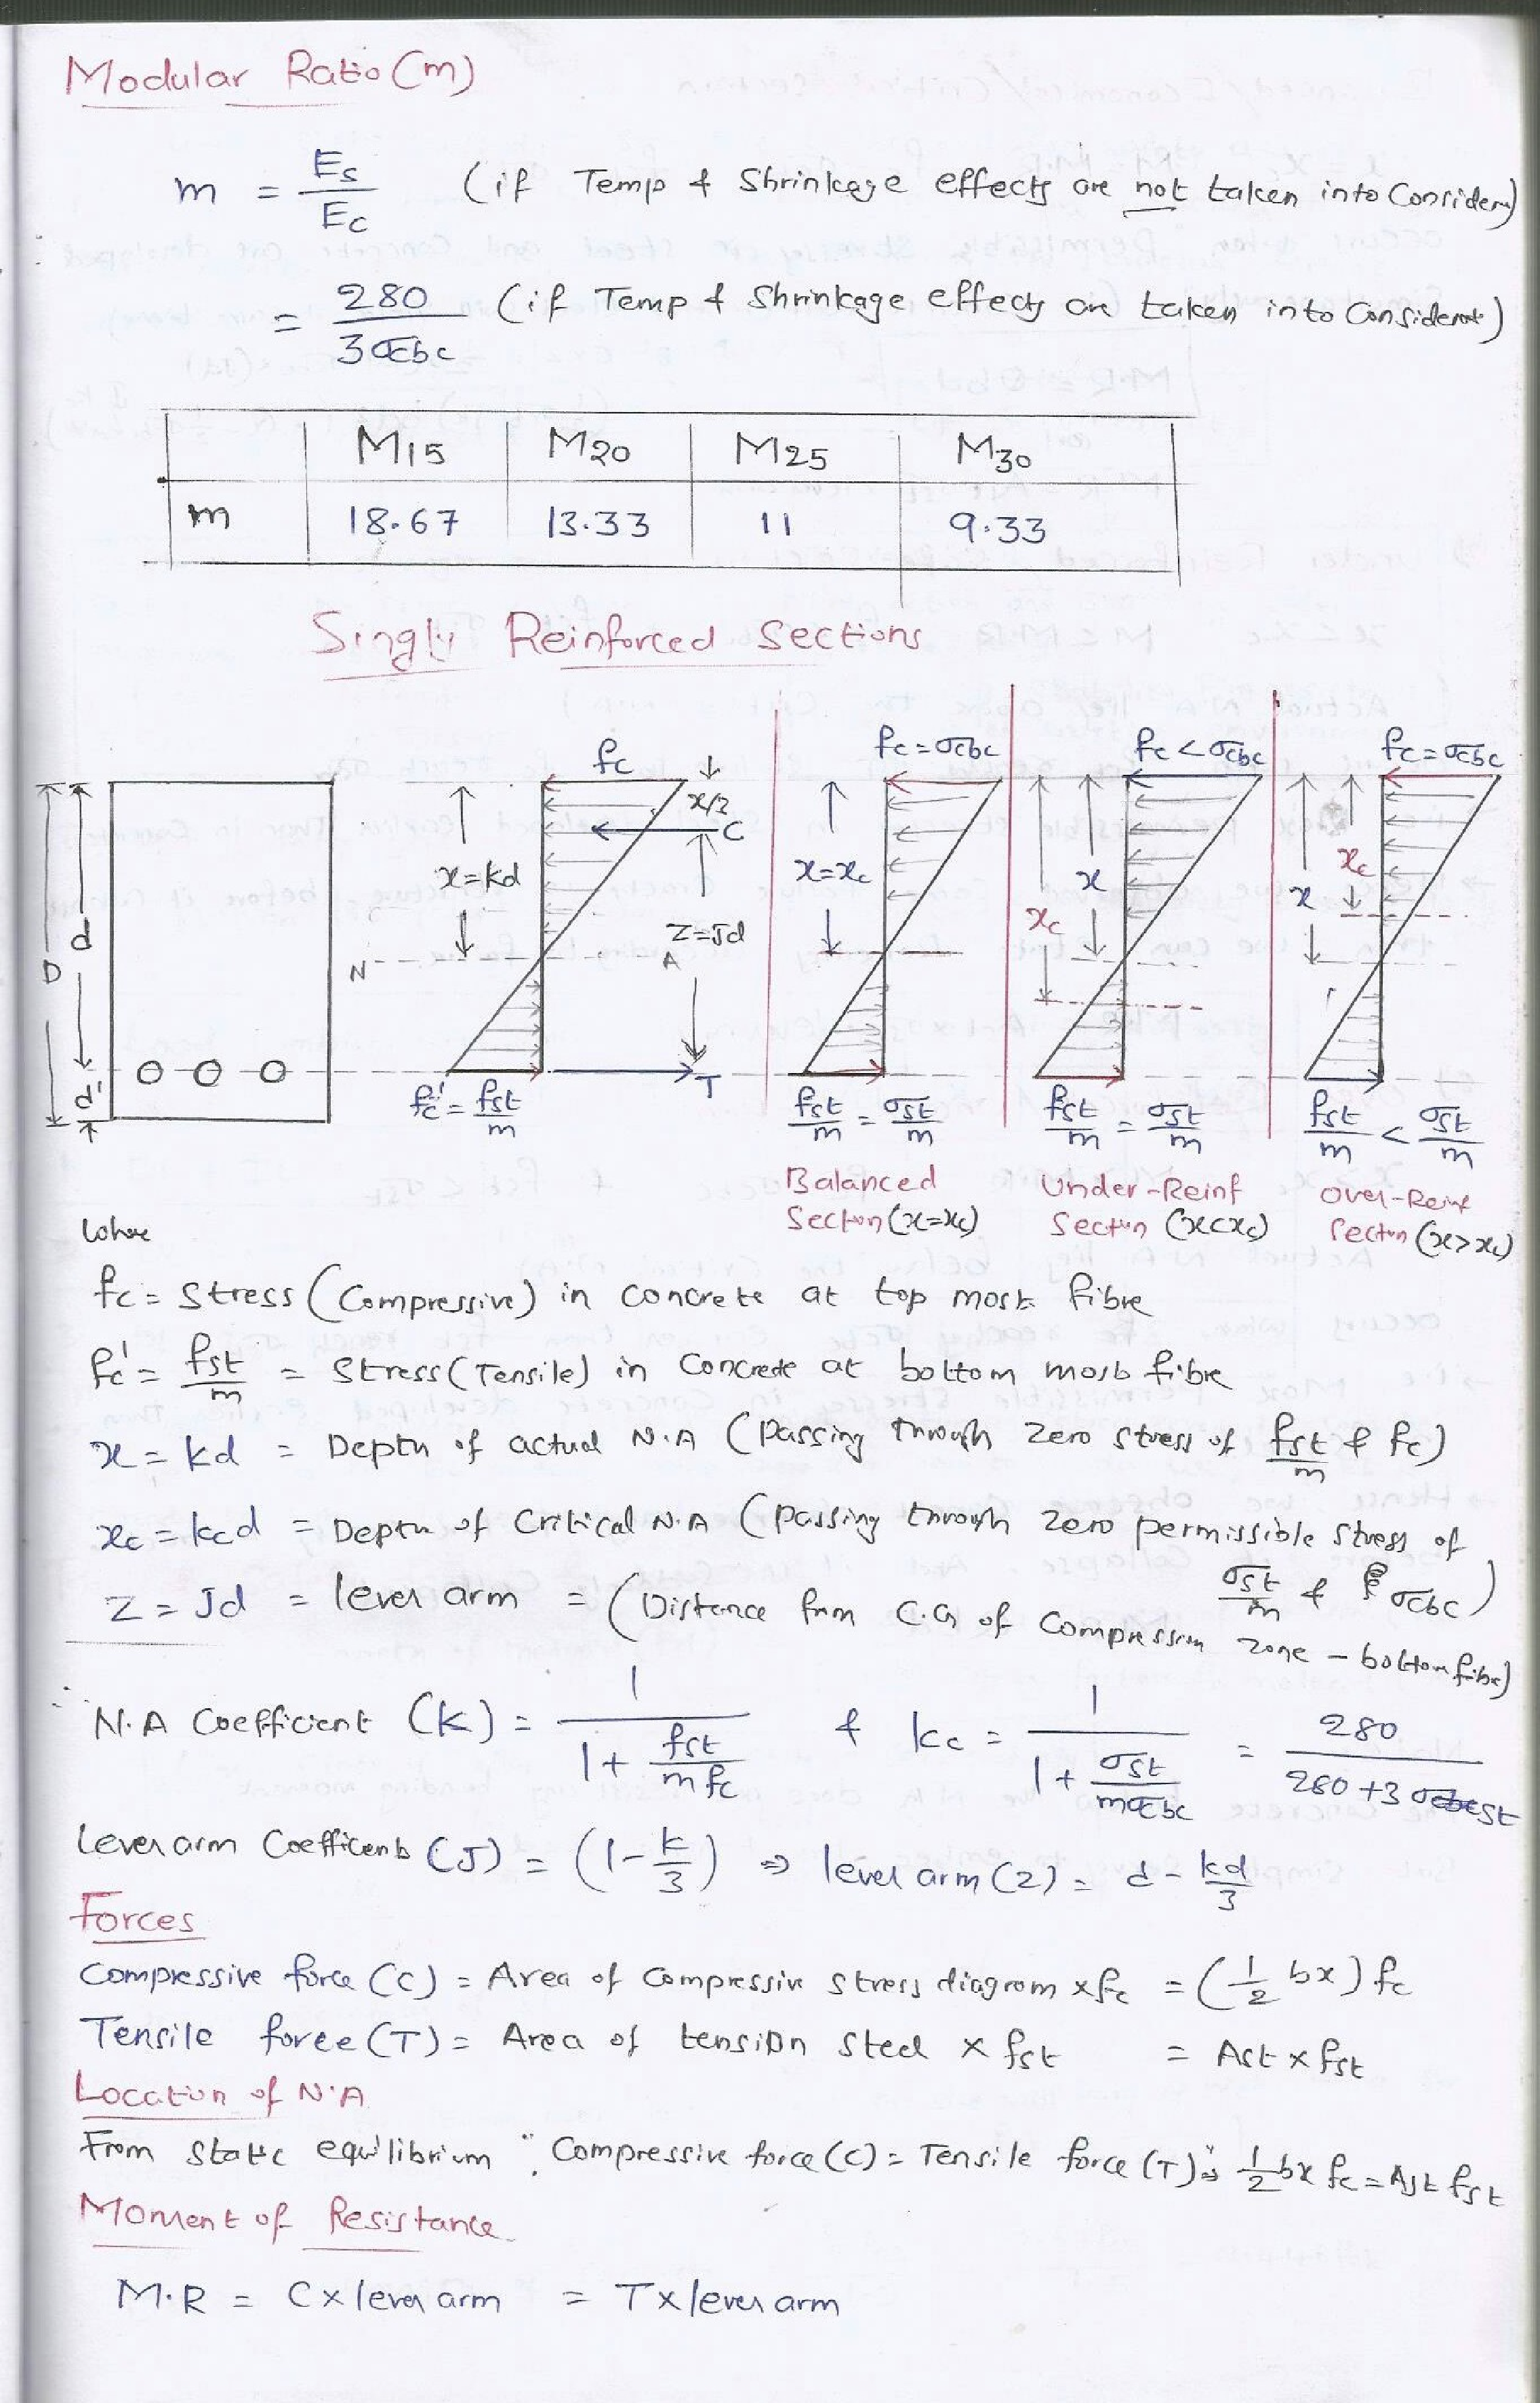 Modular Ratio (m)
m = Es/Ec (if Temp & Shrinkage effects are not taken into Consider)
= 280/3σcbc (if Temp & Shrinkage effects are taken into Considerat)
M15 M20 M25 M30
m 18.67 13.33 11 9.33
Singly Reinforced Sections
D d d'
fc x/2 C x=kd Z=Jd N A T
fc' = fst/m
fc=σcbc x=xc
fst/m = σst/m
Balanced
Section (x=xc)
fc<σcbc x xc
fst/m = σst/m
Under-Reinf
Sectun (x<xc)
fc=σcbc x xc
fst/m < σst/m
Over-Reinf
Sectn (x>xc)
where
fc = Stress (Compressive) in concrete at top most fibre
fc' = fst/m = Stress (Tensile) in Concrete at bottom most fibre
x = kd = Depth of actual N.A (Passing through Zero Stress of fst/m & fc)
xc = kcd = Depth of Critical N.A (Passing through Zero permissible Stress of
σst/m & σcbc)
Z = Jd = lever arm = (Distance from C.G of Compression zone - bottom fibre)
∴ N.A Coefficient (K) = 1/(1+ fst/mfc) & kc = 1/(1+ σst/mσcbc) = 280/(280+3σst)
Lever arm Coefficent (J) = (1-k/3) ⇒ lever arm (z) = d - kd/3
Forces
Compressive force (C) = Area of Compressive Stress diagram x fc = (1/2 bx) fc
Tensile force (T) = Area of tension Steel x fst = Ast x fst
Location of N.A
From Static equilibrium ∵ Compressive force (C) = Tensile force (T) ⇒ 1/2 bx fc = Ast fst
Moment of Resistance
M.R = C x lever arm = T x lever arm